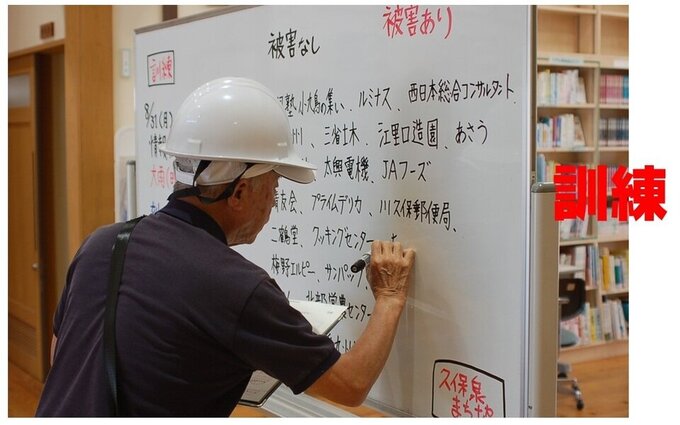 訓練
8/31(月)
情報
大雨
被害なし
被害あり
小九鳥の集い、ルミナス、西日本総合コンサルタント
川、三省土木、江里口造園、あさう
太興電機、JAフーズ
友会、プライムデリカ、川久保郵便局、
二鶴堂、クッキングセンター
梅野エルピー、サンパック
北部営農センター
久保泉
まちセ
訓練